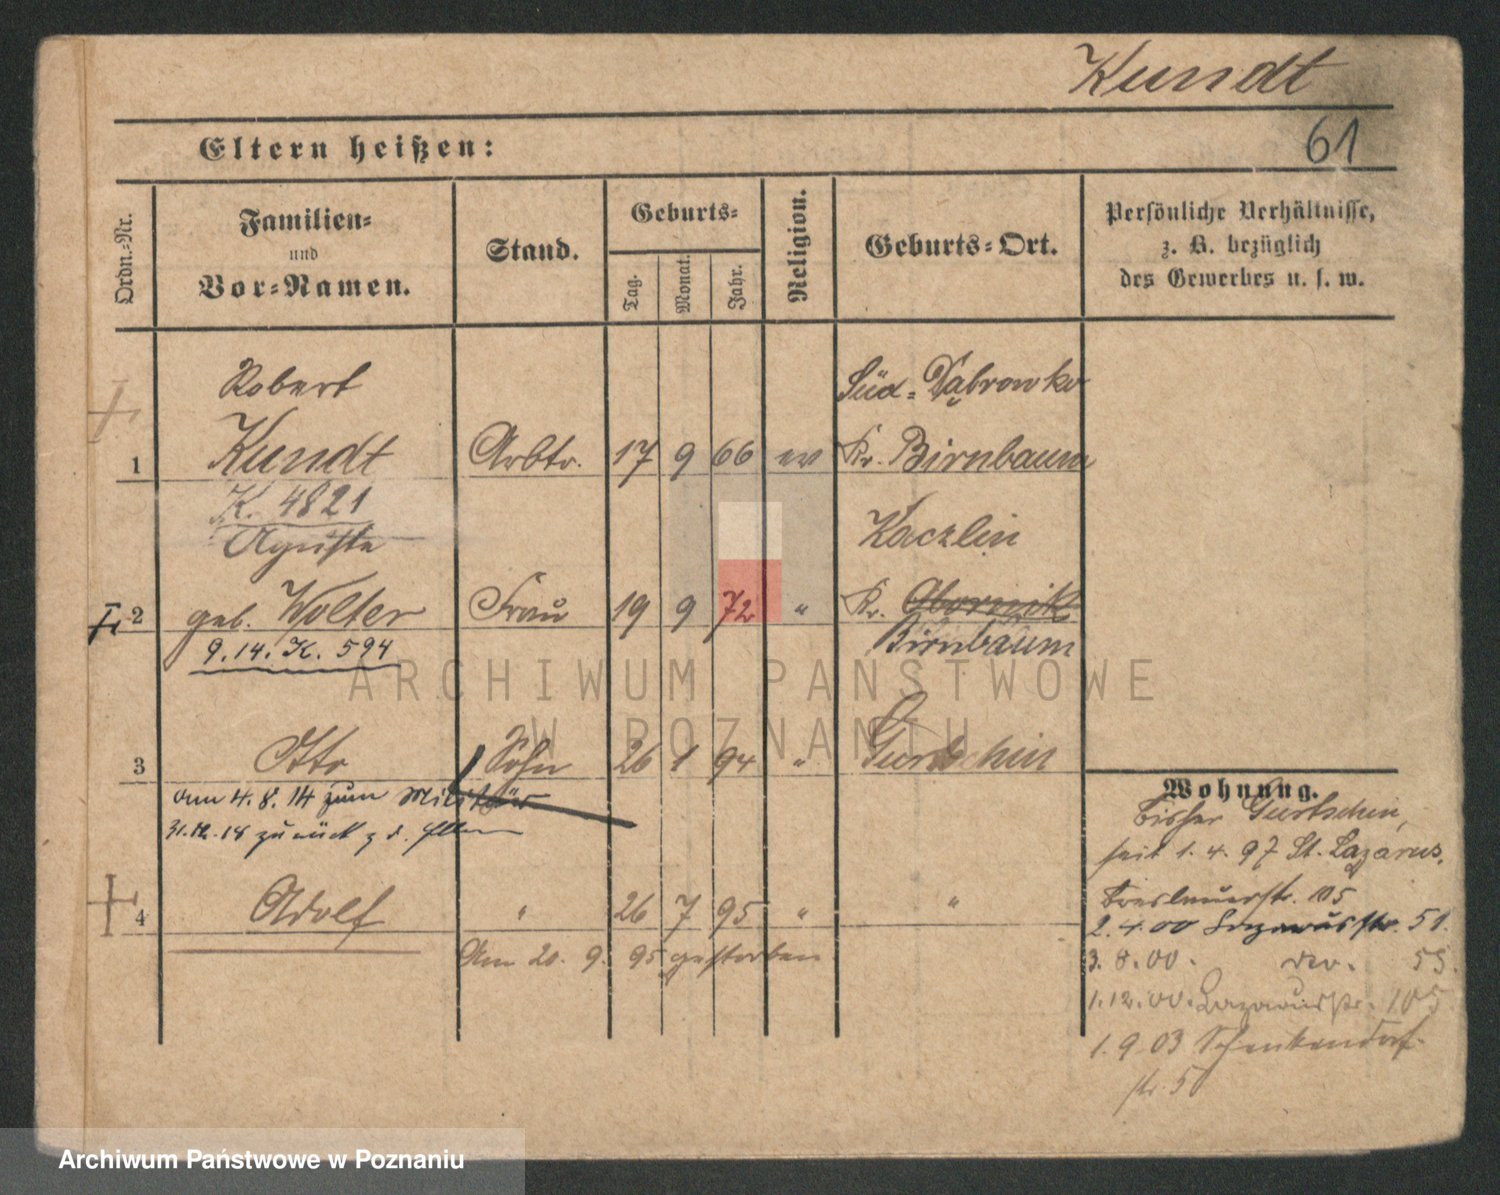 Kundt
61
Eltern heißen:
Ordn.-Nr.
Familien-
und
Vor-Namen.
Stand.
Geburts-
Tag.
Monat.
Jahr.
Religion.
Geburts-Ort.
Persönliche Verhältnisse,
z. B. bezüglich
des Gewerbes u. s. w.
Robert Süd-Dąbrowko
1 Kundt Arbtr. 17 9 66 ev Kr. Birnbaum
K. 4821
Auguste Kaczlin
2 geb. Wolter Frau 19 9 72 " Kr. Obornik
Birnbaum
9.14. K. 594
3 Otto Sohn 26 1 94 " Gurtschin
am 4.8.14 zum Militär
31.12.18 zurück z. d. Eltern
4 Adolf " 26 7 95 " "
Am 20. 9. 95 gestorben
Wohnung.
bisher Gurtschin,
seit 1.4.97 St. Lazarus,
Breslauerstr. 105
2.4.00 Lazarusstr. 51.
3.8.00. 53.
1.12.00. Lazarusstr. 105
1.9.03 Schenkendorf-
str. 5
ARCHIWUM PAŃSTWOWE
W POZNANIU
Archiwum Państwowe w Poznaniu